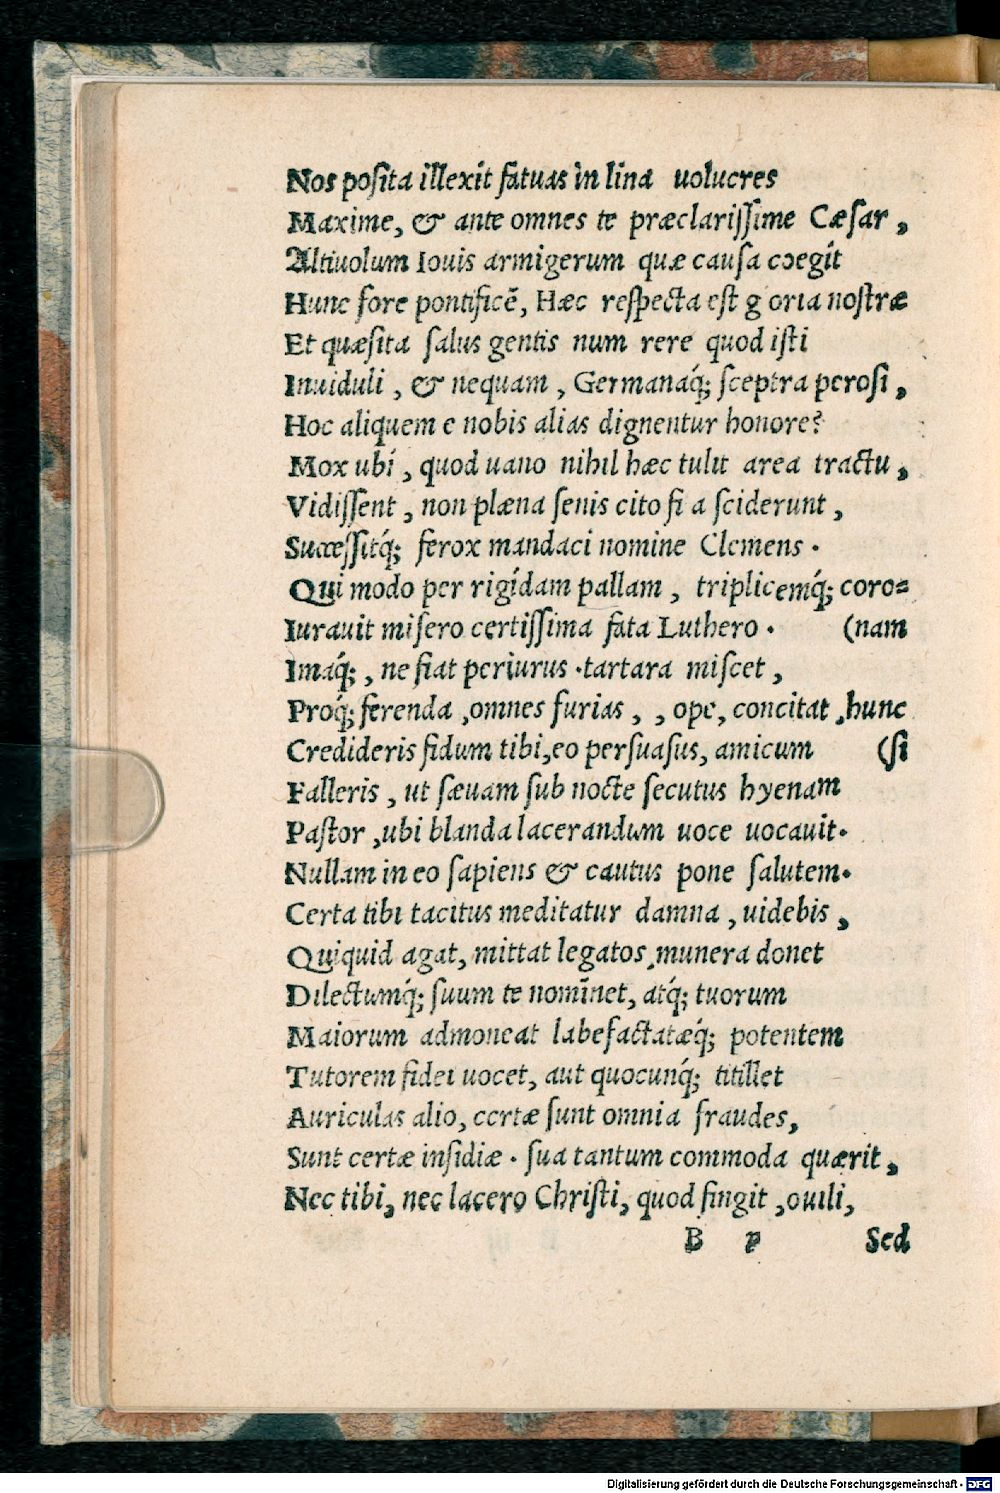 Nos posita illexit fatuas in lina uolucres
Maxime, & ante omnes te præclarissime Cæsar,
Altiuolum Iouis armigerum quæ causa coegit
Hunc fore pontificē, Hæc respecta est g oria nostræ
Et quæsita salus gentis num rere quod isti
Inuiduli, & nequam, Germanaq́; sceptra perosi,
Hoc aliquem e nobis alias dignentur honore?
Mox ubi, quod uano nihil hæc tulit area tractu,
Vidissent, non plæna senis cito fi a sciderunt,
Successitq́; ferox mandaci nomine Clemens.
Qui modo per rigidam pallam, triplicemq́; coro=
Iurauit misero certissima fata Luthero. (nam
Imaq́;, ne fiat periurus. tartara miscet,
Proq́; ferenda, omnes furias,, ope, concitat, hunc
Credideris fidum tibi, eo persuasus, amicum (si
Falleris, ut sæuam sub nocte secutus hyenam
Pastor, ubi blanda lacerandum uoce uocauit.
Nullam in eo sapiens & cautus pone salutem.
Certa tibi tacitus meditatur damna, uidebis,
Quiquid agat, mittat legatos, munera donet
Dilectumq́; suum te nomīnet, atq́; tuorum
Maiorum admoneat labefactatæq́; potentem
Tutorem fidei uocet, aut quocunq́; titillet
Auriculas alio, certæ sunt omnia fraudes,
Sunt certæ insidiæ. sua tantum commoda quærit,
Nec tibi, nec lacero Christi, quod fingit, ouili,
B p Sed
Digitalisierung gefördert durch die Deutsche Forschungsgemeinschaft - DFG